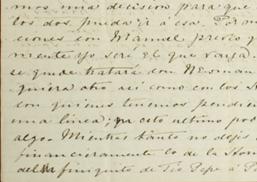 mos una decision para que
los dos pueda ir a esa.
ciones con Manuel previo y
niente yo seré el que vaya
se puede tratará con Newman
quiera otro así como con los
con quienes tenemos pendien
una linea; pa este ultimo pod
algo. Mientras tanto no dejes
financieramente lo de la
del finquito de Tio Pepe á